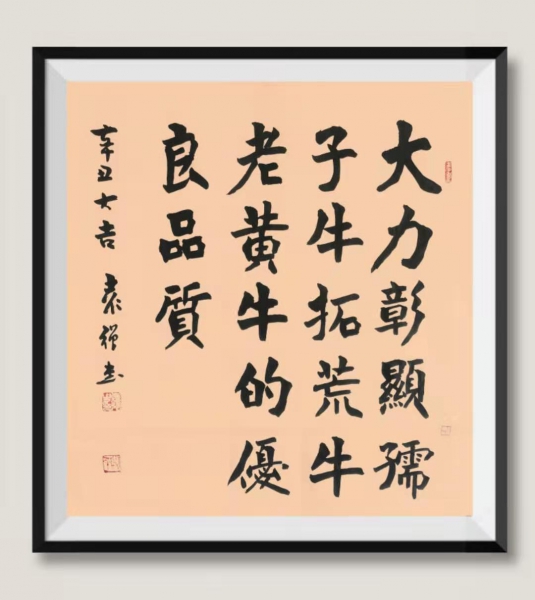 大力彰顯孺
子牛拓荒牛
老黄牛的優
良品質
辛丑大吉 袁